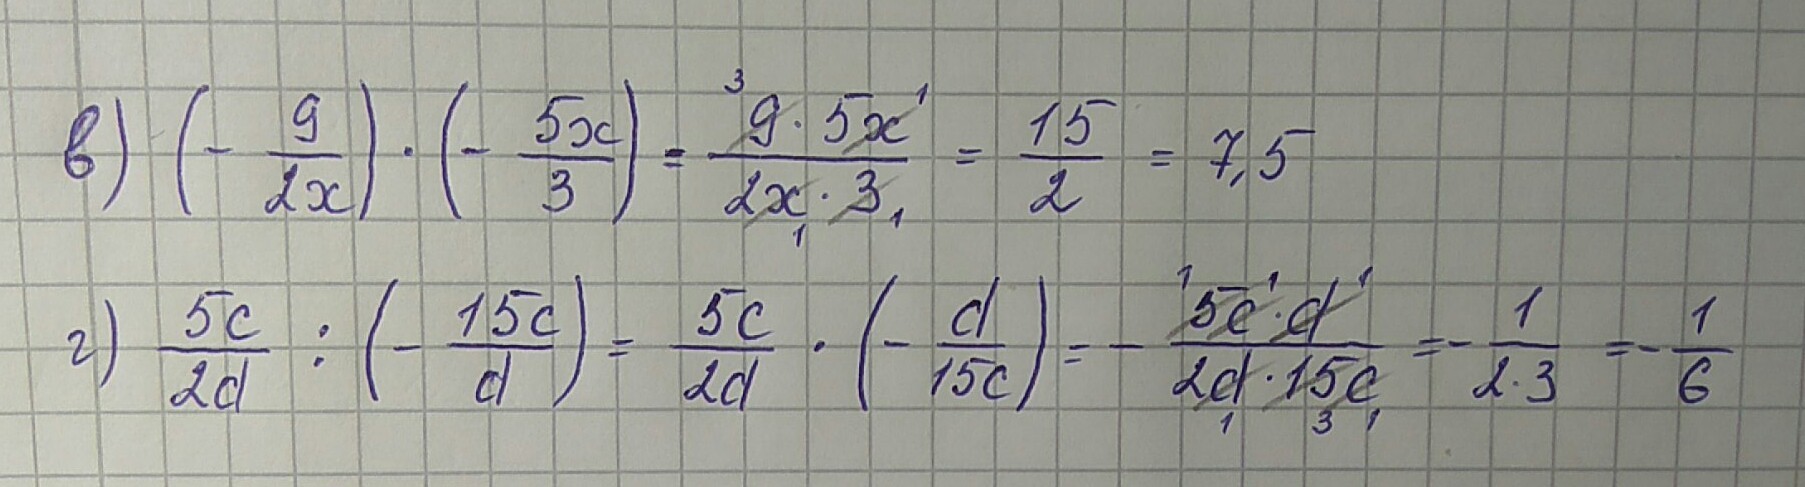 в) (- 9/2x) · (- 5x/3) = 9 · 5x/2x · 3 = 15/2 = 7,5
г) 5c/2d : (- 15c/d) = 5c/2d · (- d/15c) = - 5c · d/2d · 15c = - 1/2·3 = - 1/6